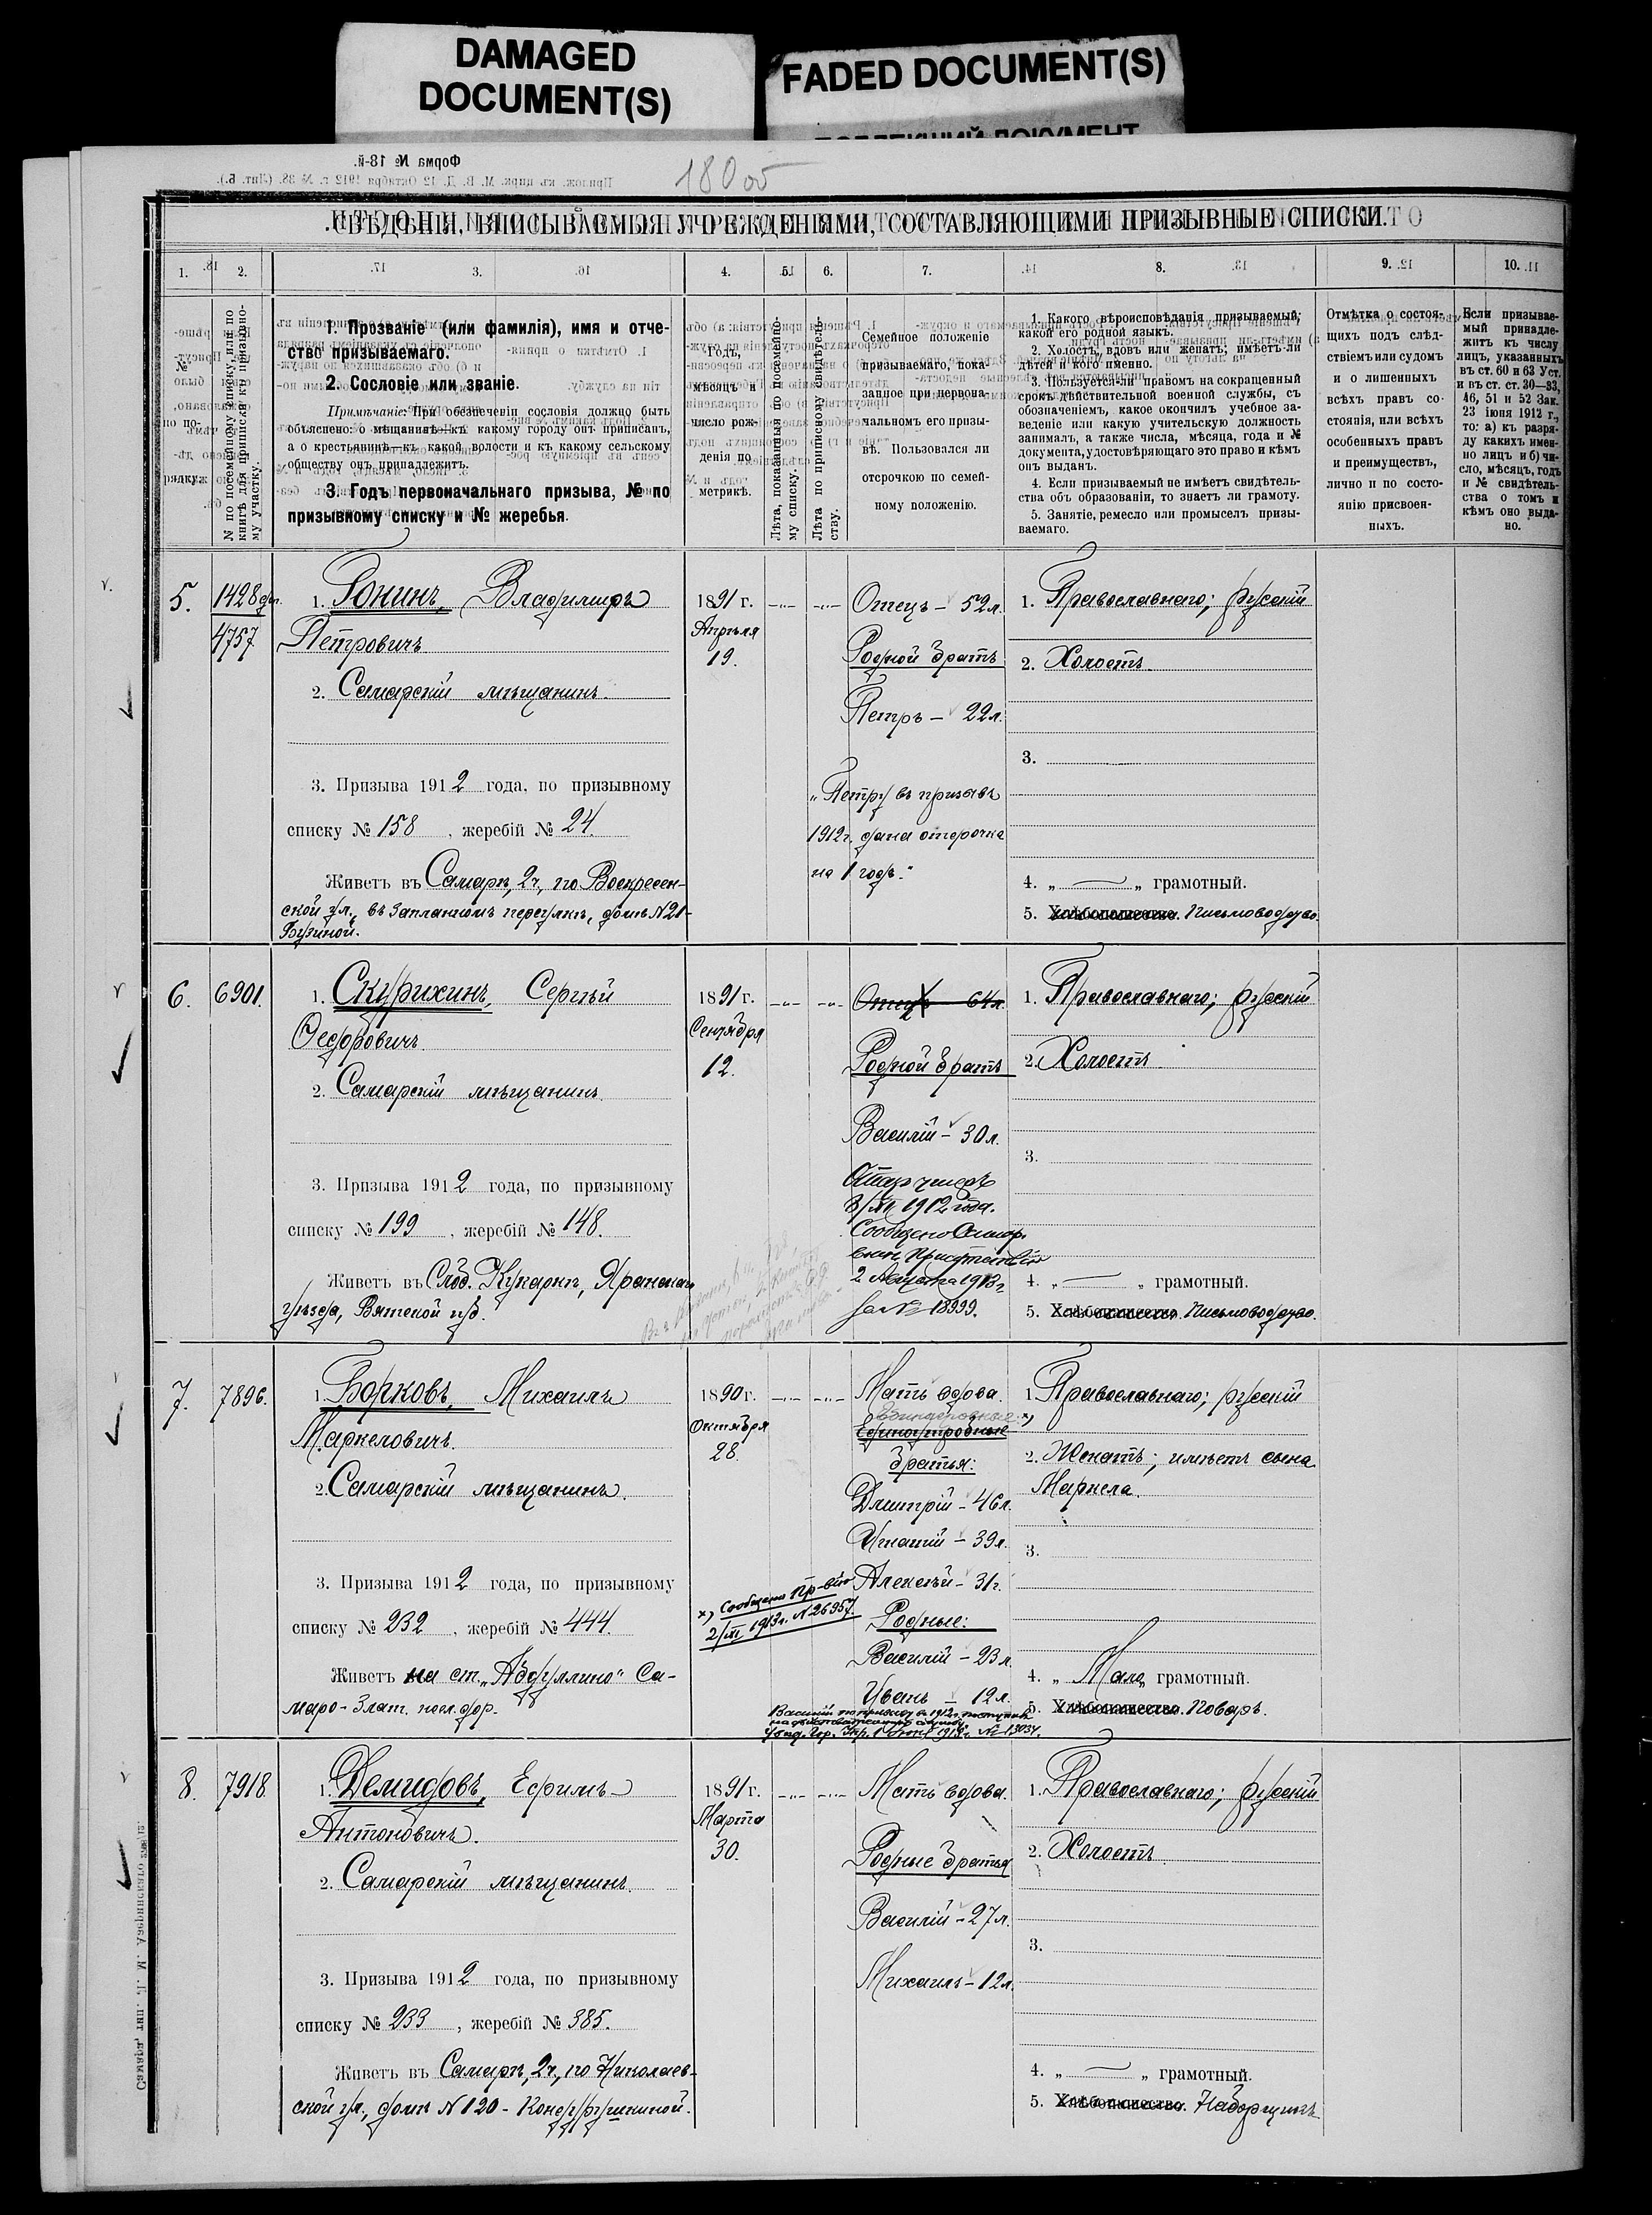 DAMAGED
DOCUMENT(S)
FADED DOCUMENT(S)
Форма № 18-й.
180 об
СВѢДѢНІЯ, ВПИСЫВАЕМЫЯ УЧРЕЖДЕНІЯМИ, СОСТАВЛЯЮЩИМИ ПРИЗЫВНЫЕ СПИСКИ.
1. 2. 3. 4. 5. 6. 7. 8. 9. 10.
№ по порядку.
№ по посемейному списку, или по книгѣ для приписки къ призывному участку.
1. Прозваніе (или фамилія), имя и отче-
ство призываемаго.
2. Сословіе или званіе.
Примѣчаніе: При обозначеніи сословія должно быть
объяснено: о мѣщанинѣ—къ какому городу онъ приписанъ,
а о крестьянинѣ—къ какой волости и къ какому сельскому
обществу онъ принадлежитъ.
3. Годъ первоначальнаго призыва, № по
призывному списку и № жеребья.
Годъ,
мѣсяцъ и
число рож-
денія по
метрикѣ.
Лѣта, показанныя по посемейно-
му списку.
Лѣта по приписному свидѣтель-
ству.
Семейное положеніе
призываемаго, пока-
занное при первона-
чальномъ его призы-
вѣ. Пользовался ли
отсрочкою по семей-
ному положенію.
1. Какого вѣроисповѣданія призываемый;
какой его родной языкъ.
2. Холостъ, вдовъ или женатъ; имѣетъ-ли
дѣтей и кого именно.
3. Пользуется-ли правомъ на сокращенный
срокъ дѣйствительной военной службы, съ
обозначеніемъ, какое окончилъ учебное за-
веденіе или какую учительскую должность
занималъ, а также числа, мѣсяца, года и №
документа, удостовѣряющаго это право и кѣмъ
онъ выданъ.
4. Если призываемый не имѣетъ свидѣтель-
ства объ образованіи, то знаетъ ли грамоту.
5. Занятіе, ремесло или промыселъ призы-
ваемаго.
Отмѣтка о состоя-
щихъ подъ слѣд-
ствіемъ или судомъ
и о лишенныхъ
всѣхъ правъ со-
стоянія, или всѣхъ
особенныхъ правъ
и преимуществъ,
лично и по состо-
янію присвоен-
ныхъ.
Если призывае-
мый принадле-
житъ къ числу
лицъ, указанныхъ
въ ст. 60 и 63 Уст.
и въ ст. ст. 30—33,
46, 51 и 52 Зак.
23 іюня 1912 г.,
то: а) къ разря-
ду какихъ имен-
но лицъ и б) чи-
сло, мѣсяцъ, годъ
и № свидѣтель-
ства о томъ и
кѣмъ оно выда-
но.
5. 1428 дп. 1. Ронинъ, Владиміръ 1891 г. Отецъ – 52 л. 1. Православнаго; русскій
4757 Петровичъ Апрѣля
19. Родной братъ 2. Холостъ.
2. Самарскій мѣщанинъ.
Петръ – 22 л.
3.
3. Призыва 1912 года, по призывному
„Петру въ призывъ
списку № 158, жеребій № 24.
1912 г. дана отсрочка
на 1 годъ."
Живетъ въ Самарѣ, 2 ч., по Воскресен-
4. „ — „ грамотный.
ской ул., въ Запланномъ переулкѣ, домъ № 21-
5. Хлѣбопашество. Письмоводство.
Бузиной.
6. 6901. 1. Скурихинъ, Сергѣй 1891 г. Отецъ 64 л. 1. Православнаго; русскій
Ѳедоровичъ. Сентября
12. Родной братъ 2. Холостъ.
2. Самарскій мѣщанинъ.
Василій – 30 л.
3.
Отецъ умеръ
3. Призыва 1912 года, по призывному
1912 года.
списку № 199, жеребій № 148.
Сообщено Самар.
2 Августа 1913 г.
за № 18999.
Живетъ въ Слоб. Кукаркѣ, Яранскаго
4. „ — „ грамотный.
уѣзда, Вятской губ.
5. Хлѣбопашество. Письмоводство.
7. 7896. 1. Борковъ, Михаилъ 1890 г. Мать вдова. 1. Православнаго; русскій
Маркеловичъ. Октября
28. Единоутробные
братья: 2. Женатъ; имѣетъ сына
2. Самарскій мѣщанинъ. Маркела.
Дмитрій – 46 л.
Игнатій – 39 л.
3.
3. Призыва 1912 года, по призывному Алексѣй – 31 г.
×) Сообщена Пр-вію
2/III 1913 г. № 26957.
Родные:
списку № 232, жеребій № 444.
Василій – 23 л.
Живетъ на ст. „Абдуллино" Са-
4. „ Мало „ грамотный.
Иванъ – 12 л.
маро-Злат. жел. дор.
5. Хлѣбопашество. Поваръ.
Василій по призыву въ 1912 г. поступилъ
№ 13034.
8. 7918. 1. Демидовъ, Ефимъ 1891 г. Мать вдова. 1. Православнаго; русскій
Антоновичъ. Марта
30. Родные братья 2. Холостъ.
2. Самарскій мѣщанинъ.
Василій – 27 л.
3.
3. Призыва 1912 года, по призывному Михаилъ – 12 л.
списку № 233, жеребій № 385.
Живетъ въ Самарѣ, 2 ч., по Николаев-
4. „ — „ грамотный.
ской ул., домъ № 120 - Кондурушкиной.
5. Хлѣбопашество. Наборщикъ.